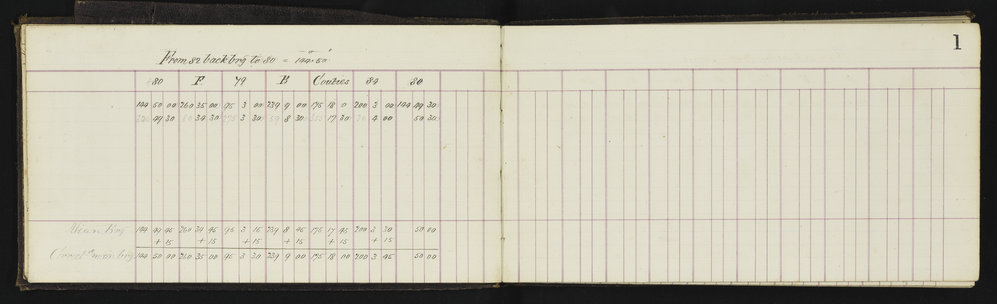 1
From 82 back brg to 80 = 144° 50'
80 F 79 B Coutses 84 80
144 50 00 260 35 00 95 3 00 239 9 00 175 18 0 200 3 00 144 49 30
49 30 34 30 275 3 30 59 8 30 17 30 4 00 50 30
Mean Brg 144 49 45 260 34 45 95 3 15 239 8 45 175 17 45 200 3 30 50 00
+ 15 + 15 + 15 + 15 + 15 + 15
Correct mean brg 144 50 00 260 35 00 95 3 30 239 9 00 175 18 00 200 3 45 50 00